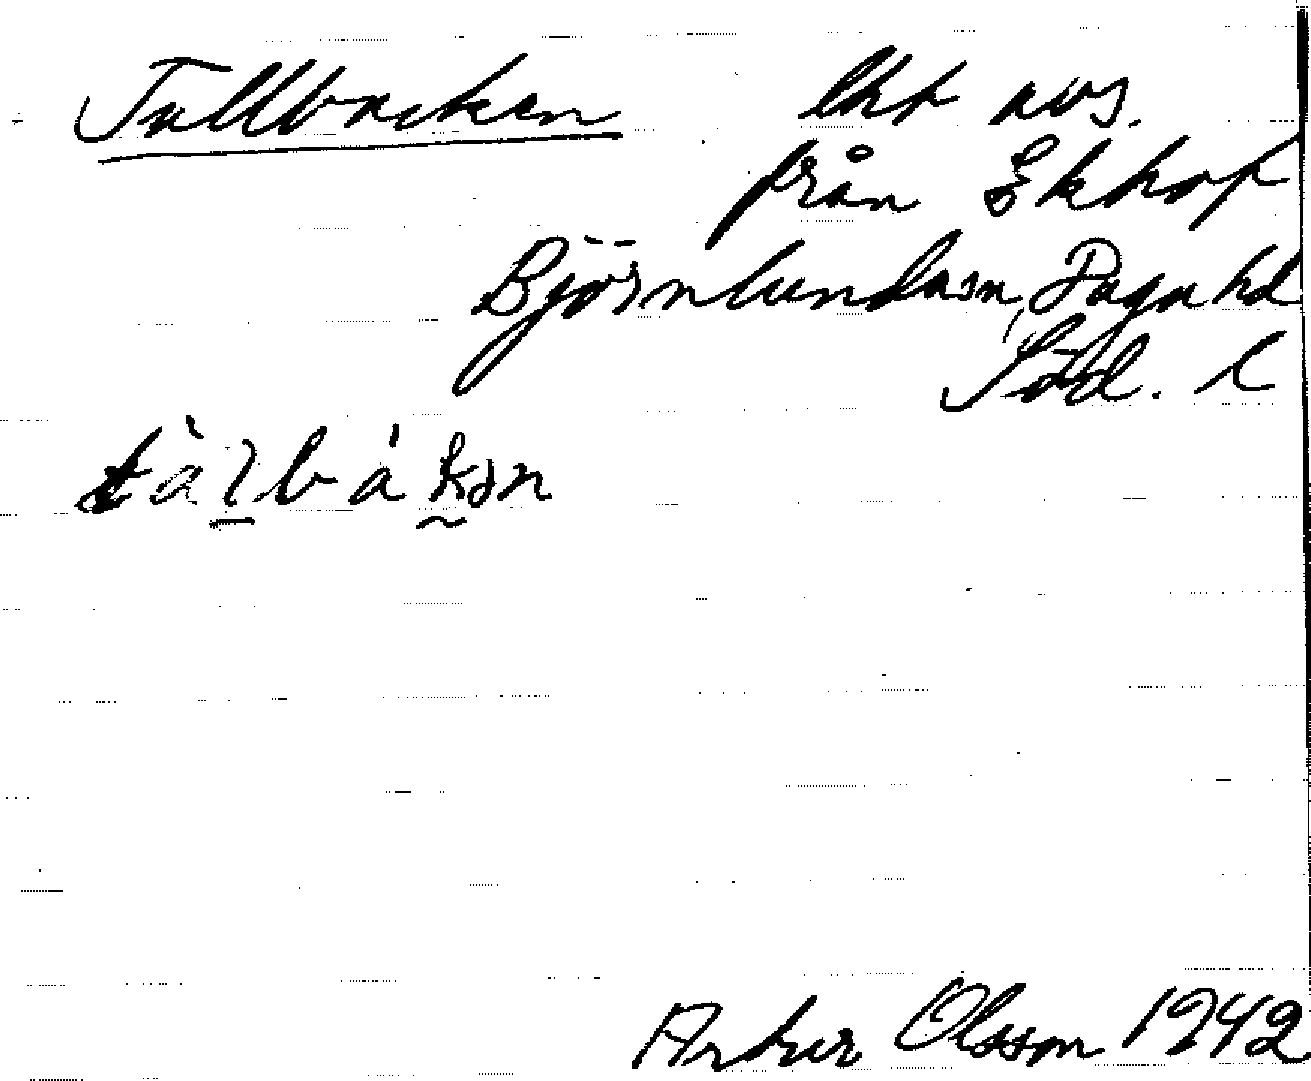 Tallbacken lht avs.
från Ekhof
Björnlunda sn, Daga hd
Söd. l
tàl̠bákən
Artur Olsson 1942